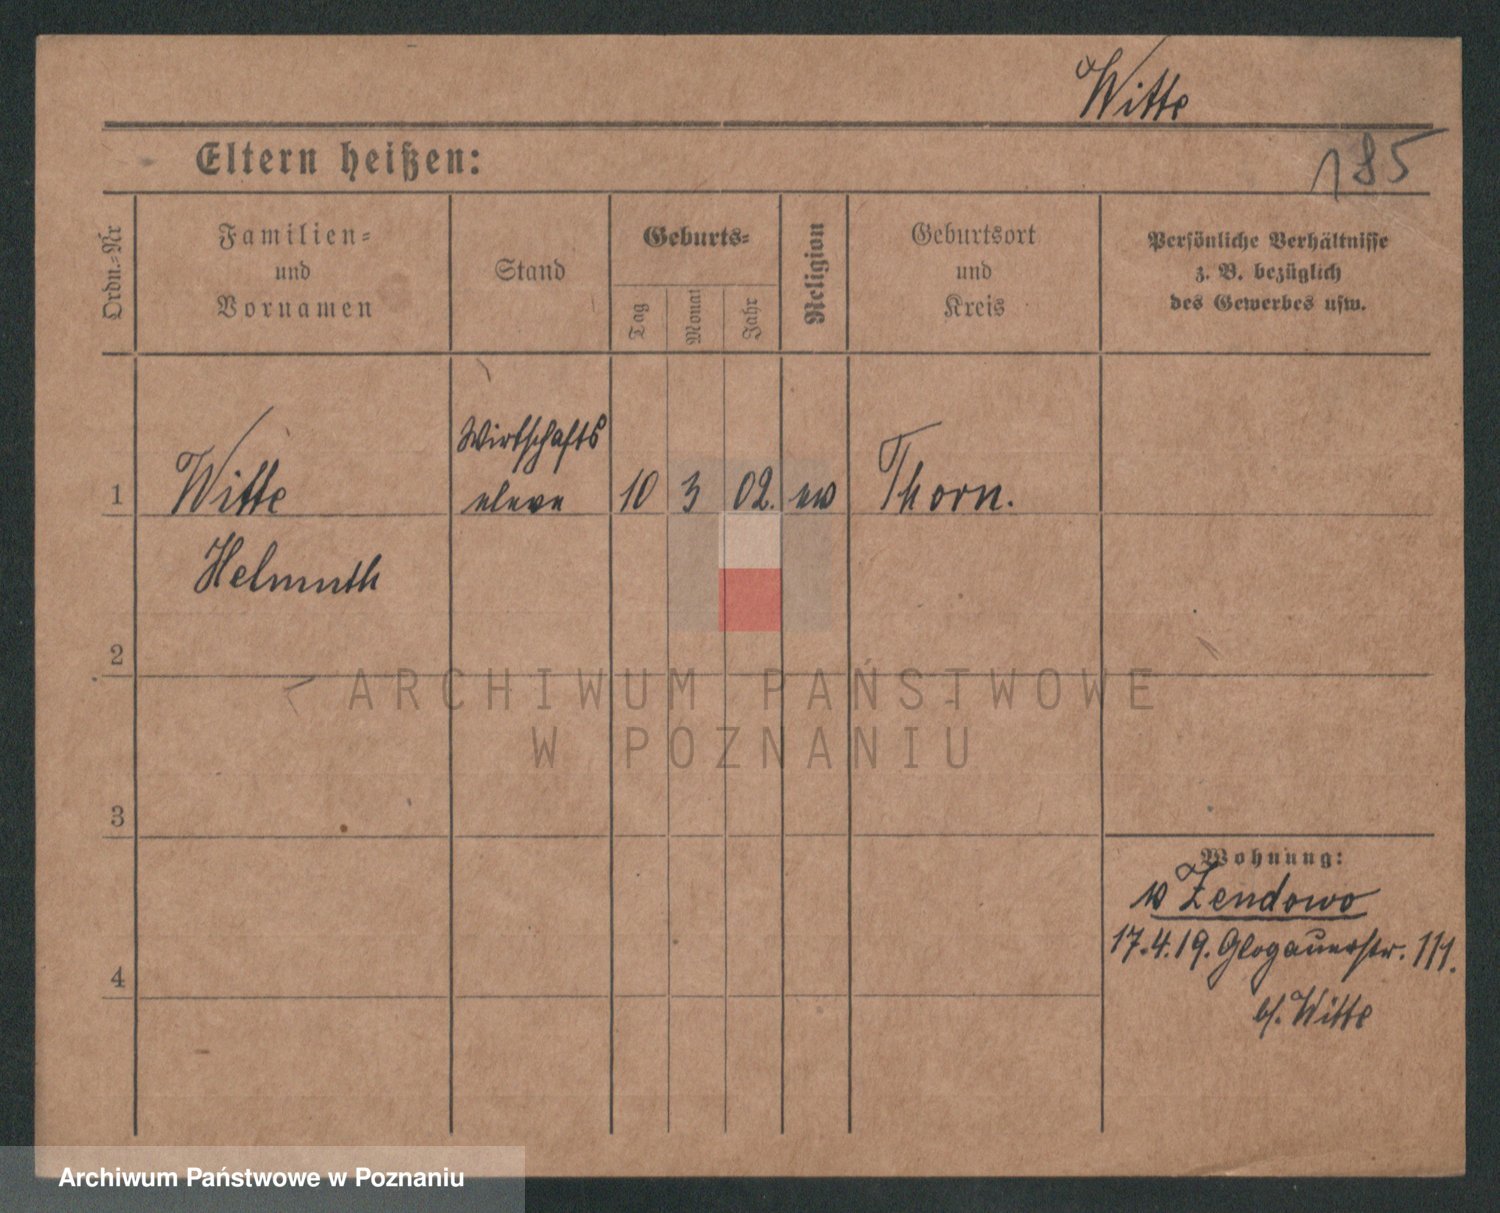 Witte
Eltern heißen:
185
Ordn.=Nr
Familien=
und
Vornamen
Stand
Geburts=
Tag
Monat
Jahr
Religion
Geburtsort
und
Kreis
Persönliche Verhältnisse
z. B. bezüglich
des Gewerbes usw.
1
Witte
Wirtschafts
eleve
10 3 02. ev Thorn.
Helmuth
2
ARCHIWUM PAŃSTWOWE
W POZNANIU
3
Wohnung:
Zendowo
17.4.19. Glogauerstr. 111.
b/. Witte
4
Archiwum Państwowe w Poznaniu